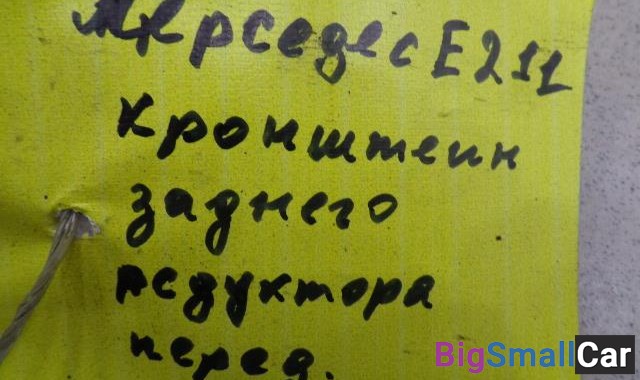 Мерседес Е211
кронштеин
заднего
редуктора
перед.
BigSmallCar